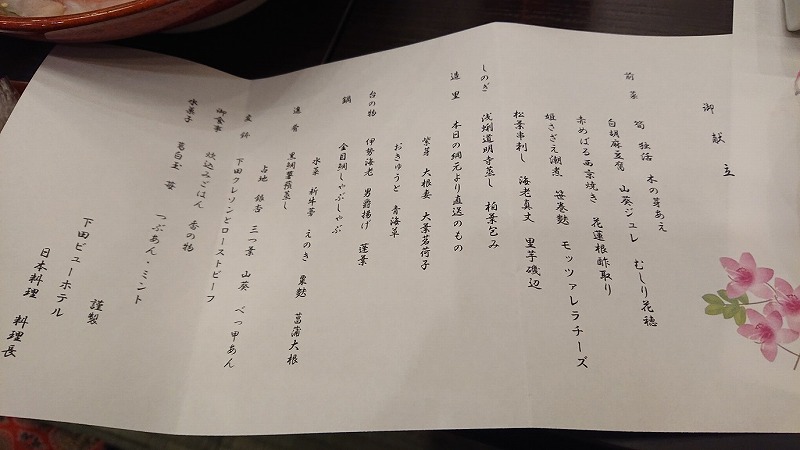 御献立
前菜 筍 独活 木の芽あえ
白胡麻豆腐 山葵ジュレ むしり花穂
赤めばる西京焼き 花蓮根酢取り
姫さざえ潮煮 笹巻麩 モッツァレラチーズ
松葉串刺し 海老真丈 里芋磯辺
しのぎ 浅蜊道明寺蒸し 柏葉包み
造里 本日の網元より直送のもの
紫芽 大根妻 大葉茗荷子
おきゅうと 青海草
台の物 伊勢海老 男爵揚げ 蓬景
鍋 金目鯛しゃぶしゃぶ
水菜 新牛蒡 えのき 粟麩 菖蒲大根
進肴 黒鯛蕪蒸し
占地 銀杏 三つ葉 山葵 べっ甲あん
変鉢 下田クレソンとローストビーフ
御食事 炊込みごはん 香の物
水菓子 葛白玉 苺 つぶあん・ミント
謹製
下田ビューホテル
日本料理 料理長